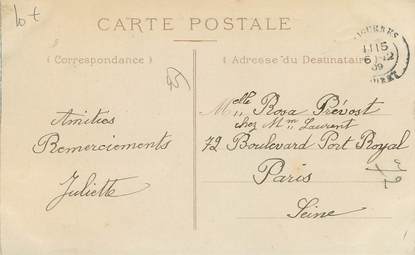 CARTE POSTALE
(Correspondance)
(Adresse du Destinataire)
11 15
6 12
09
LOIRET
Amitiés
Remerciements
Juliette
Melle Rosa Prévost
chez Mm Laurent
72 Boulevard Port Royal
Paris
Seine